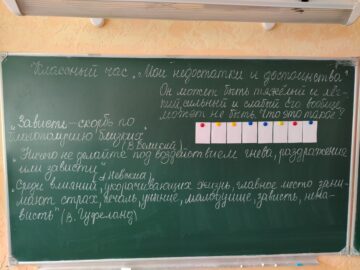 Классный час „Мои недостатки и достоинства"
Он может быть тяжёлый и лёг-
кий, сильный и слабый его вообще
может не быть. Что это такое?
„Зависть – скорбь по
благополучию ближних"
(В. Великий)
„Ничто не делайте под воздействием гнева, раздражения
или зависти"
Среди влияний, укорачивающих жизнь, главное место зани-
мают страх, печаль, уныние, малодушие, зависть, нена-
висть" (В. Гуфеланд)